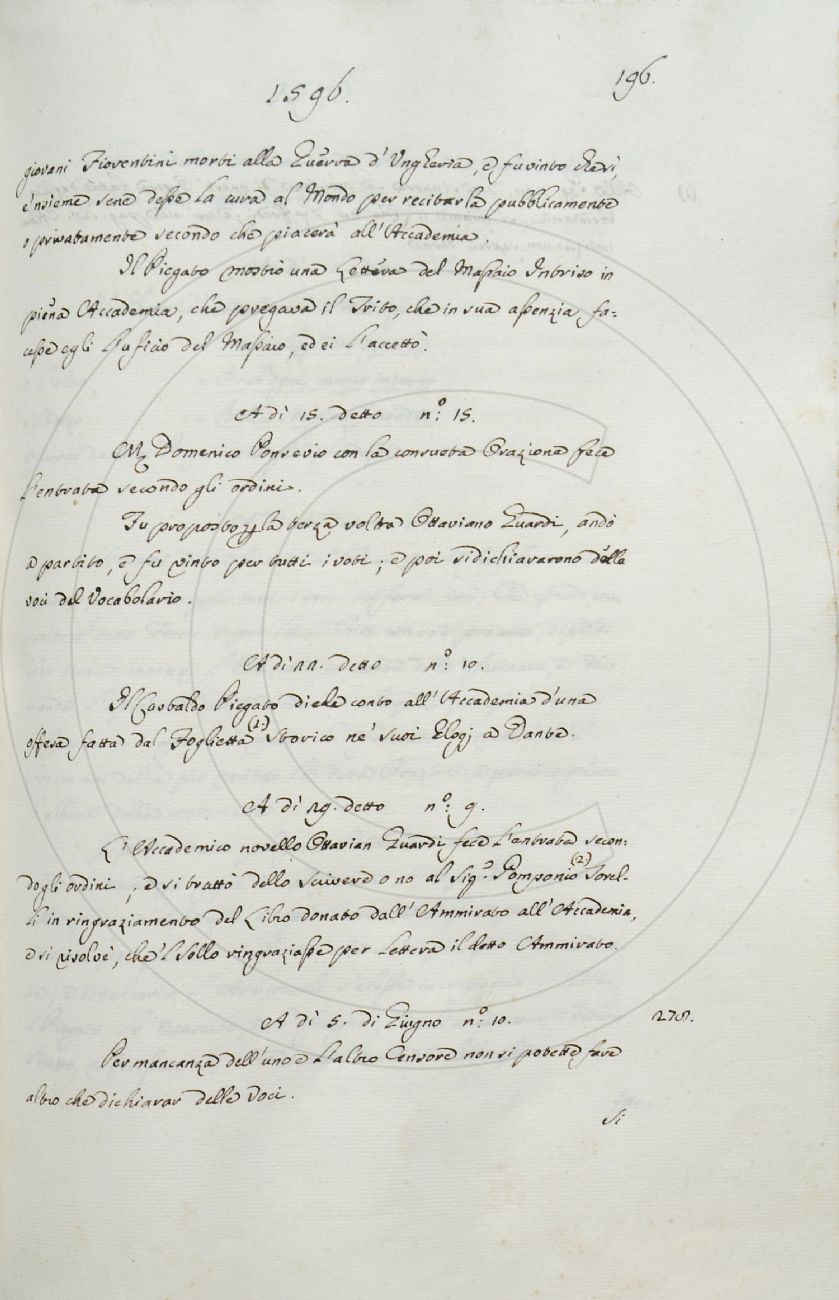 1596.
196.
giovani Fiorentini morti alla Guerra d'Ungheria, e fu vinto che sì,
e 'nsieme sene desse la cura al Mondo per recitarla pubblicamente
o privatamente secondo che piacerà all'Accademia.
Il Piegato mostrò una Lettera del Massaio Intriso in
piena Accademia, che pregava il Trito, che in sua assenzia, fa=
cesse egli l'uficio del Massaio, ed ei l'accettò.
A dì 15. detto n.º: 15.
M. Domenico Ponsevio con la consueta Orazione fece
l'entrata secondo gli ordini.
Fu proposto per la terza volta Ottaviano Guardi, andò
a partito, e fu vinto per tutti i voti; e poi si dichiararono delle
voci del Vocabolario.
A dì 22. detto n.º: 10.
Il Castaldo Piegato diede conto all'Accademia d'una
offesa fatta dal Foglietta (1.) Storico ne' suoi Elogj a Dante.
A dì 29. detto n.º: 9.
L'Accademico novello Ottavian Guardi fece l'entrata secon=
do gli ordini; e si trattò dello scrivere o no al Sig.º Pomponio (2) Torel=
li in ringraziamento del Libro donato dall'Ammirato all'Accademia,
e si risolvè, che 'l Sollo ringraziasse per Lettera il detto Ammirato.
A dì 5. di Giugno n.º: 10.
278.
Per mancanza dell'uno e l'altro Censore non si potette fare
altro che dichiarar delle Voci.
Si